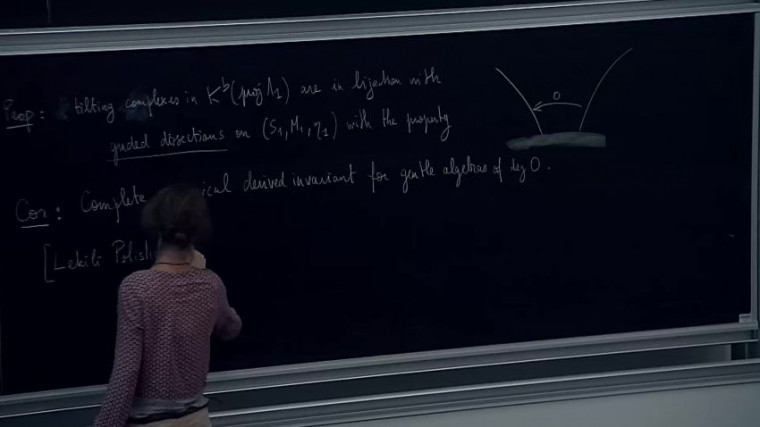 Prop: tilting complexes in K^b(proj Λ_1) are in bijection with
graded dissections on (S_1, M_1, η_1) with the property
0
Cor: Complete derived invariant for gentle algebras of deg 0.
[Lekili